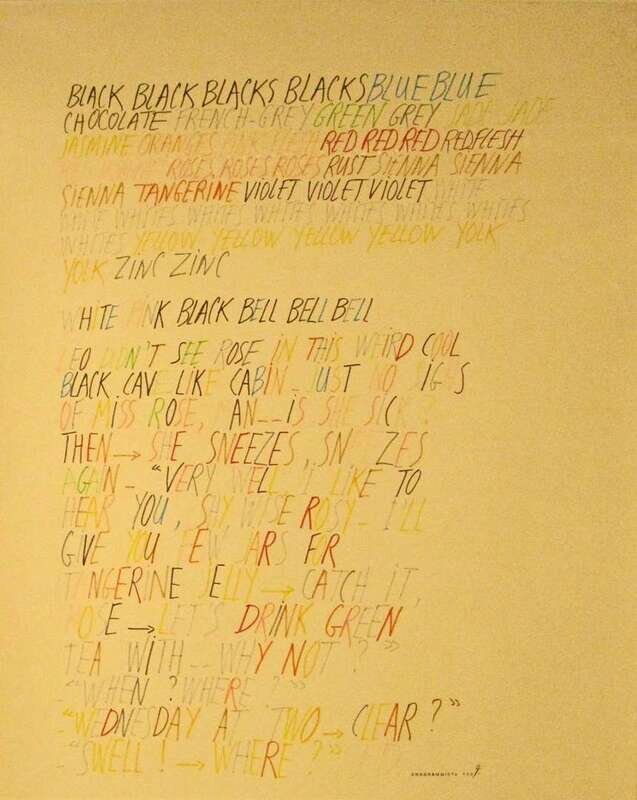 BLACK BLACK BLACKS BLACKS BLUE BLUE
CHOCOLATE FRENCH-GREY GREEN GREY JADE JADE
JASMINE ORANGES RED RED RED REDFLESH
ROSES ROSES ROSES RUST SIENNA SIENNA
SIENNA TANGERINE VIOLET VIOLET VIOLET WHITE
WHITE WHITES WHITES WHITES WHITES WHITES WHITES
WHITES YELLOW YELLOW YELLOW YELLOW YOLK
YOLK ZINC ZINC
WHITE PINK BLACK BELL BELL BELL
LEO DIDN'T SEE ROSE IN THIS WEIRD COOL
BLACK CAVE LIKE CABIN_ JUST NO SIGNS
OF MISS ROSE, MAN__IS SHE SICK?
THEN → SHE SNEEZES, SNEEZES
AGAIN_ "VERY WELL I LIKE TO
HEAR YOU, SHY WISE ROSY_ I'LL
GIVE YOU FEW JARS FOR
TANGERINE JELLY → CATCH IT,
ROSE → LET'S DRINK GREEN
TEA WITH__ WHY NOT?"
_"WHEN? WHERE?"
_"WEDNESDAY AT TWO → CLEAR?"
_"SWELL! → WHERE?"